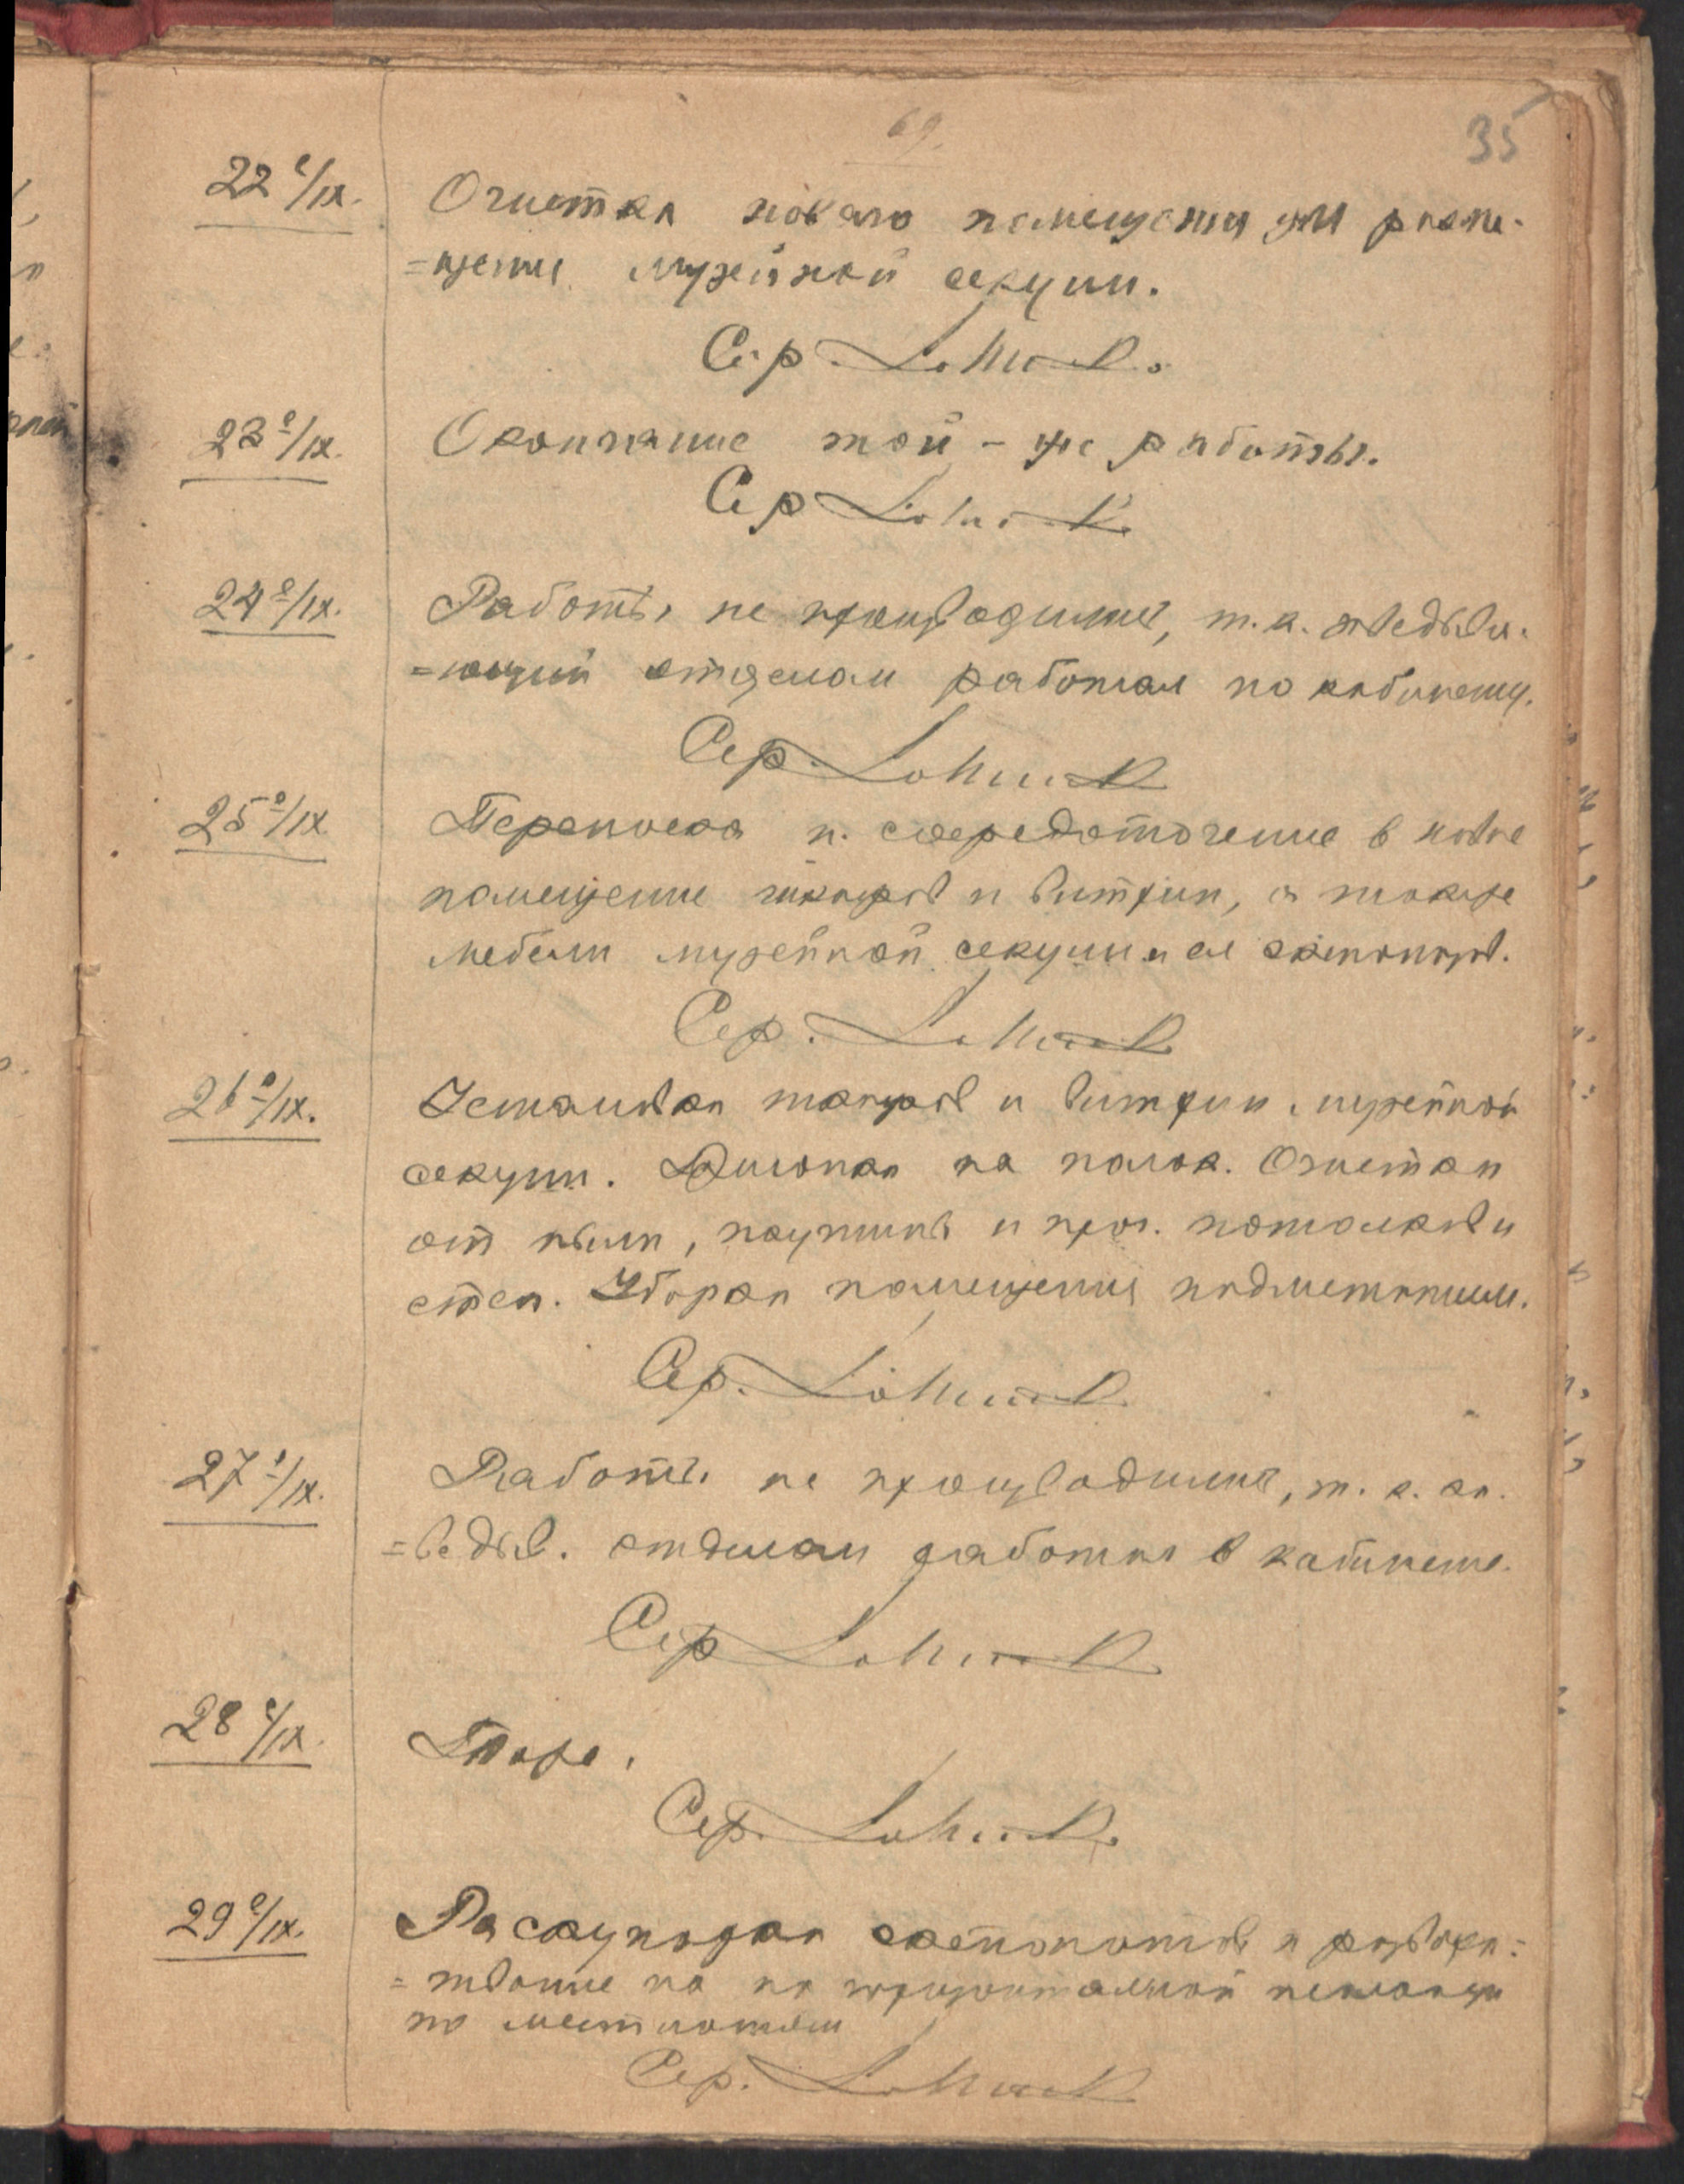 69.
35
22 е/IX. Очистка новаго помещения для разме-
=щения музейной секции.
Сер.
23 е/IX. Окончание той-же работы.
Сер
24 е/IX. Работы не производились, т.к. заведыва-
=ющий отделом работал по кабинету.
Сер.
25 е/IX. Переноска и сосредоточение в новое
помещение шкапов и витрин, а также
мебели музейной секции и ея экспонатов.
Сер.
26 е/IX. Установка шкапов и витрин музейной
секции. полок. Очистка
от пыли, паутины и проч. потолков и
стен. Уборка помещения подметанием.
Сер.
27 е/IX. Работы не производились, т.к. за-
=ведыв. отделом работал в кабинете.
Сер
28 е/IX. Тоже.
Сер.
29 е/IX. экспонатов и
по местностям
Сер.